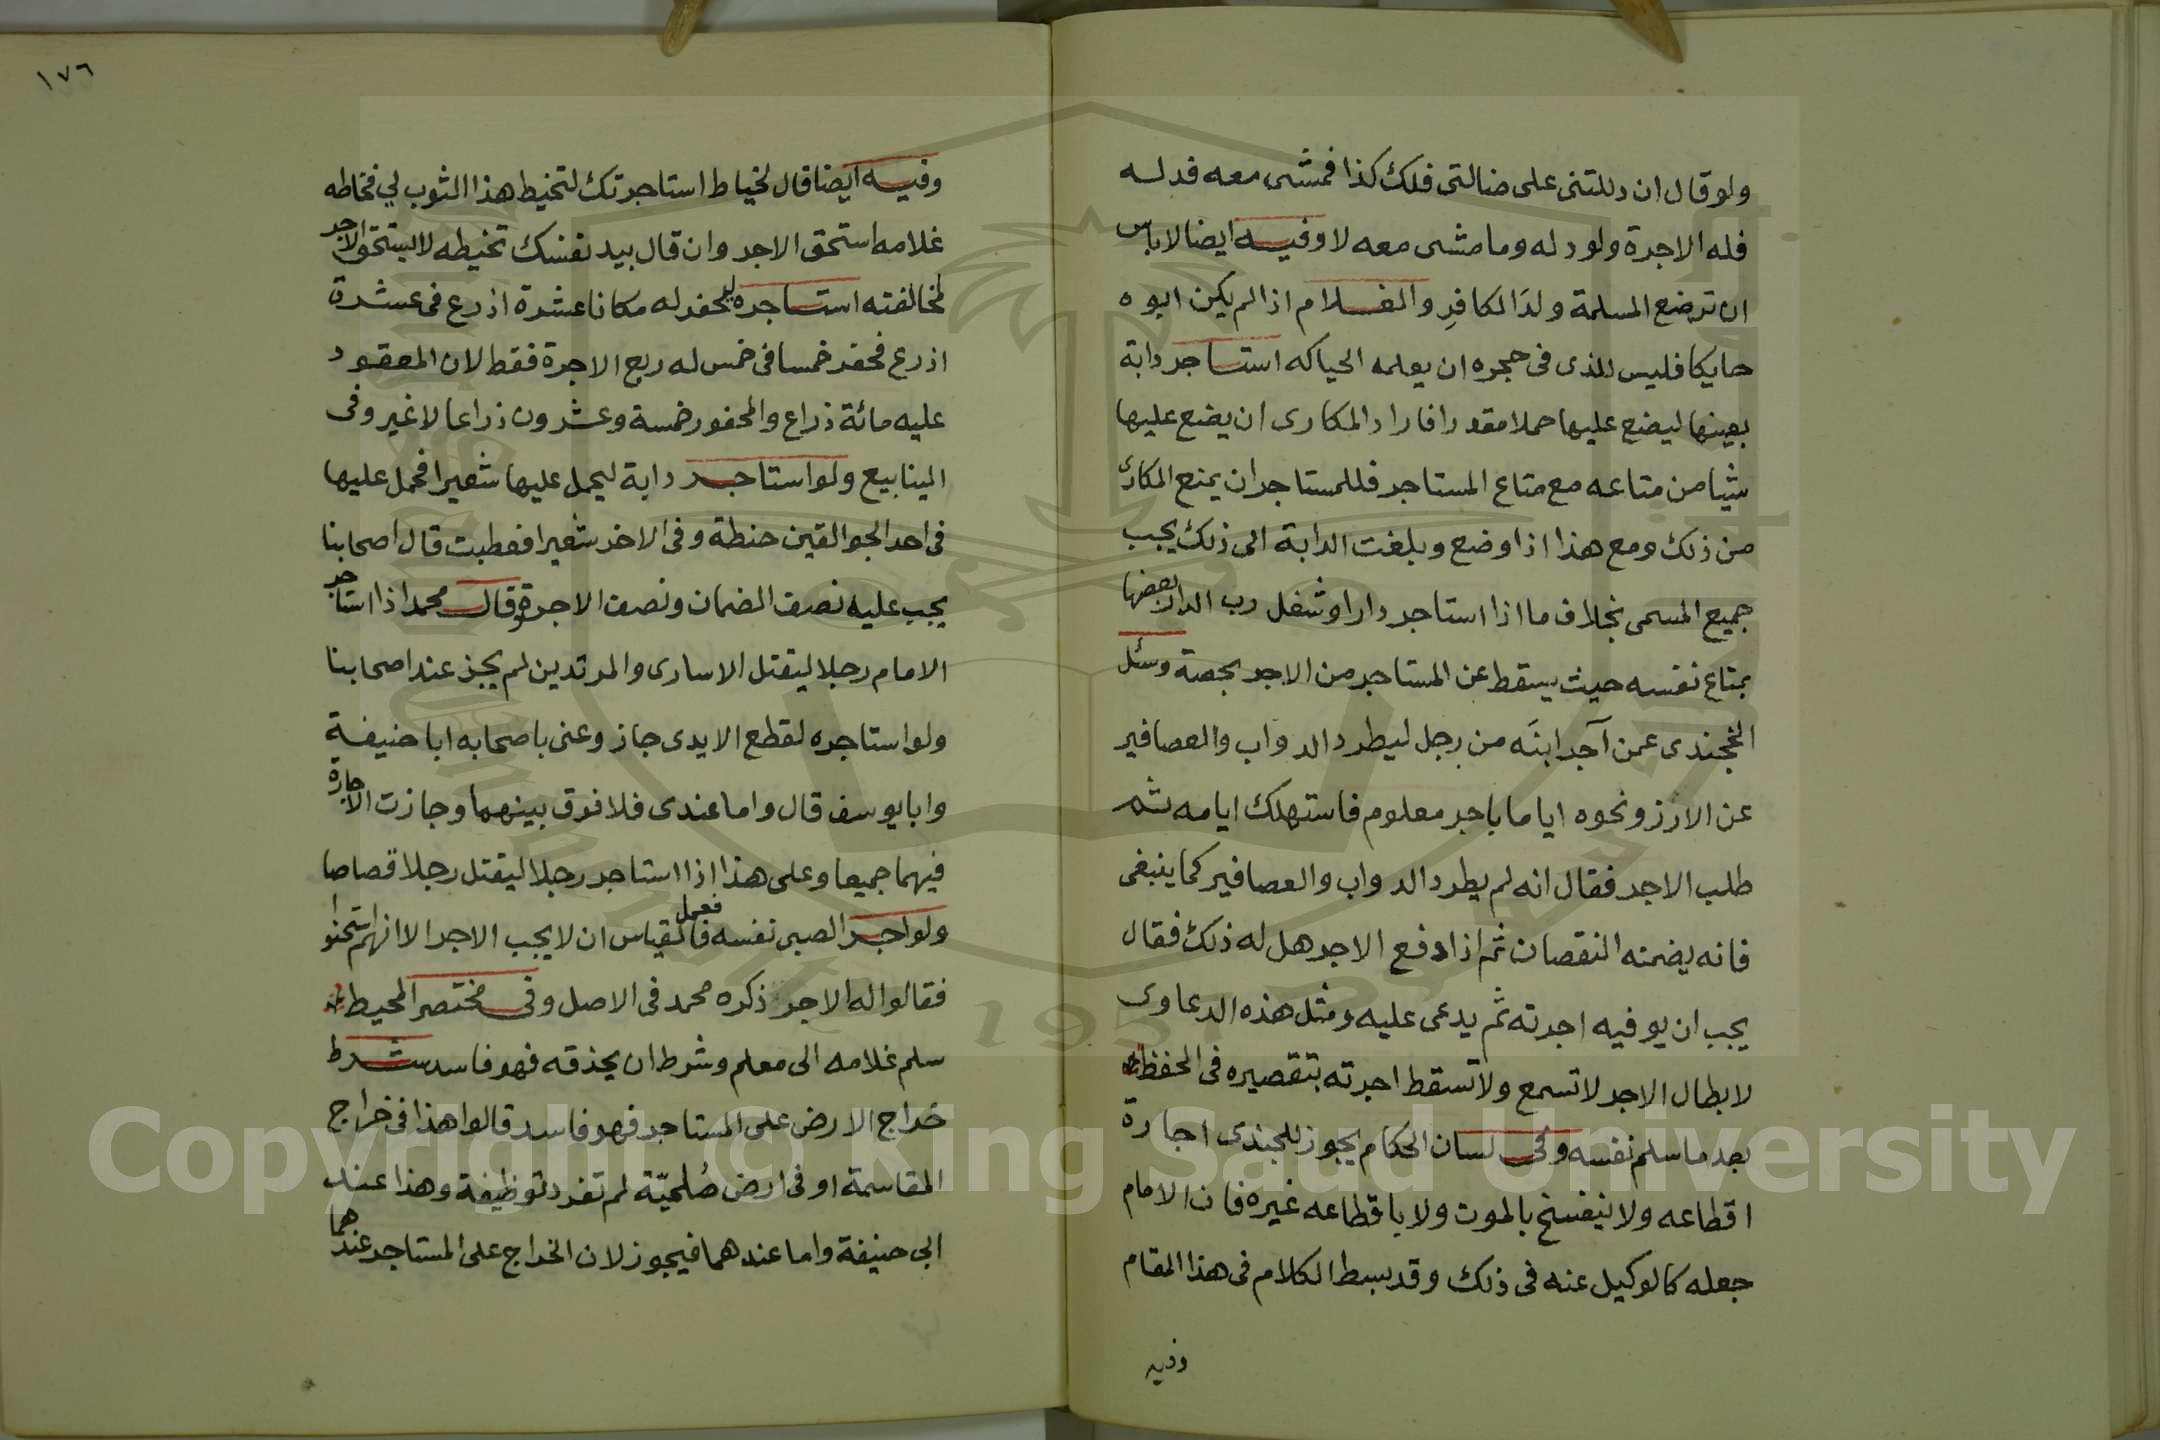 ولو قال ان دللتني على ضالتي فلك كذا فمشى معه فدله
فله الاجرة ولو دله وما مشى معه لا وفيه ايضا لا باس
ان ترضع المسلمة ولدَ الكافرِ والغلام اذا لم يكن ابوه
حايكا فليس للذى فى حجره ان يعلمه الحياكه استاجر دابة
بعينها ليضع عليها حملا مقدرا فاراد المكارى ان يضع عليها
شيا من متاعه مع متاع المستاجر فللمستاجر ان يمنع المكارى
من ذلك ومع هذا اذا وضع وبلغت الدابة الى ذلك يجب
جميع المسمى بخلاف ما اذا استاجر دارا وشغل رب الدار بعضها
بمتاع نفسه حيث يسقط عن المستاجر من الاجر بحصة وسئل
الخجندى عمن آجر ابنَه من رجل ليطرد الدواب والعصافير
عن الارز ونحوه اياما باجر معلوم فاستهلك ايامه ثم
طلب الاجر فقال انه لم يطرد الدواب والعصافير كما ينبغى
فانه يضمنه النقصان ثم اذا دفع الاجر هل له ذلك فقال
يجب ان يوفيه اجرته ثم يدعى عليه ومثل هذه الدعاوى
لابطال الاجر لا تسمع ولا تسقط اجرته بتقصيره فى الحفظ
بعد ما سلم نفسه وفى لسان الحكام يجوز للجندى اجارة
اقطاعه ولا ينفسخ بالموت ولا باقطاعه غيره فان الامام
جعله كالوكيل عنه فى ذلك وقد بسط الكلام فى هذا المقام
وفيه
١٧٦
وفيه ايضا قال لخياط استاجرتك لتخيط هذا الثوب لي فخاطه
غلامه استحق الاجر وان قال بيد نفسك تخيطه لا يستحق الاجر
لمخالفته استاجره ليحفر له مكانا عشرة اذرع فى عشرة
اذرع فحفر خمسا فى خمس له ربع الاجرة فقط لان المعقود
عليه مائة ذراع والمحفور خمسة وعشرون ذراعا لا غير وفى
الينابيع ولو استاجر دابة ليحمل عليها شعيرا فحمل عليها
فى احد الجوالقين حنطة وفى الاخر شعيرا فعطبت قال اصحابنا
يجب عليه نصف الضمان ونصف الاجرة وقال محمد اذا استاجر
الامام رجلا ليقتل الاسارى والمرتدين لم يجز عند اصحابنا
ولو استاجره لقطع الايدى جاز وعنى باصحابه ابا حنيفة
وابا يوسف قال واما عندى فلا فرق بينهما وجازت الاجارة
فيهما جميعا وعلى هذا اذا استاجر رجلا ليقتل رجلا قصاصا
ولو اجر الصبى نفسه فعمل فالقياس ان لا يجب الاجر الا انهم استحسنوا
فقالوا له الاجر ذكره محمد فى الاصل وفى مختصر المحيط
سلم غلامه الى معلم وشرط ان يحذقه فهو فاسد شرط
خراج الارض على المستاجر فهو فاسد قالوا هذا فى خراج
المقاسمة او فى ارض صُلحيّة لم تفرد توظيفة وهذا عند
ابى حنيفة واما عندهما فيجوز لان الخراج على المستاجر عندهما
Copyright © King Saud University